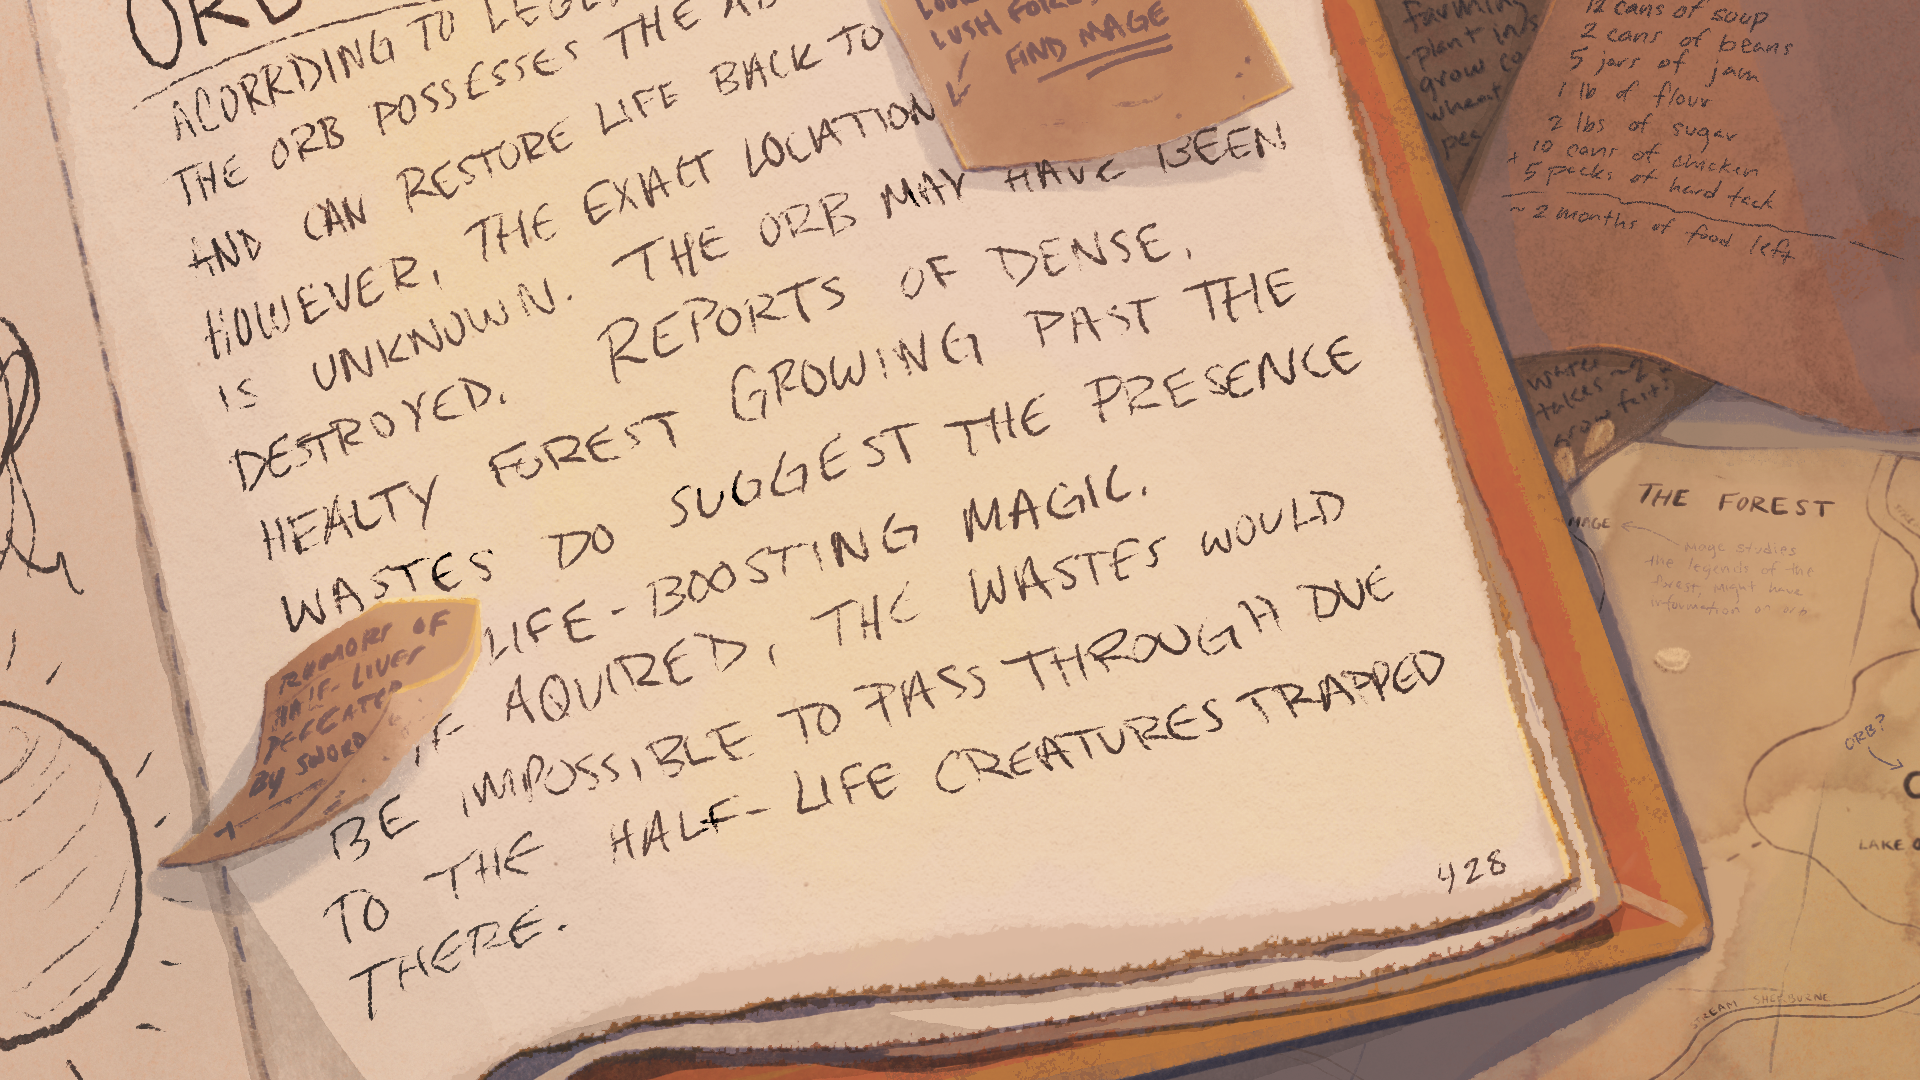 ORB
ACORRDING TO LEGE
THE ORB POSSESSES THE AB
AND CAN RESTORE LIFE BACK TO
HOWEVER, THE EXACT LOCATION
IS UNKNOWN. THE ORB MAY HAVE BEEN
DESTROYED. REPORTS OF DENSE,
HEALTY FOREST GROWING PAST THE
WASTES DO SUGGEST THE PRESENCE
LIFE-BOOSTING MAGIC.
IF AQUIRED, THE WASTES WOULD
BE IMPOSSIBLE TO PASS THROUGH DUE
TO THE HALF-LIFE CREATURES TRAPPED
THERE.
428
LUSH FORES
FIND MAGE
RUMORS OF
HALF-LIVES
DEFEATED
BY SWORD
farming
plant in
grow co
wheat
pea
12 cans of soup
2 cans of beans
5 jars of jam
1 lb of flour
2 lbs of sugar
10 cans of chicken
+ 5 packs of hard tack
~ 2 months of food left
water
takes
grow
THE FOREST
MAGE
mage studies
the legends of the
forest, might have
information on orb
ORB?
LAKE
STREAM SHERBURNE